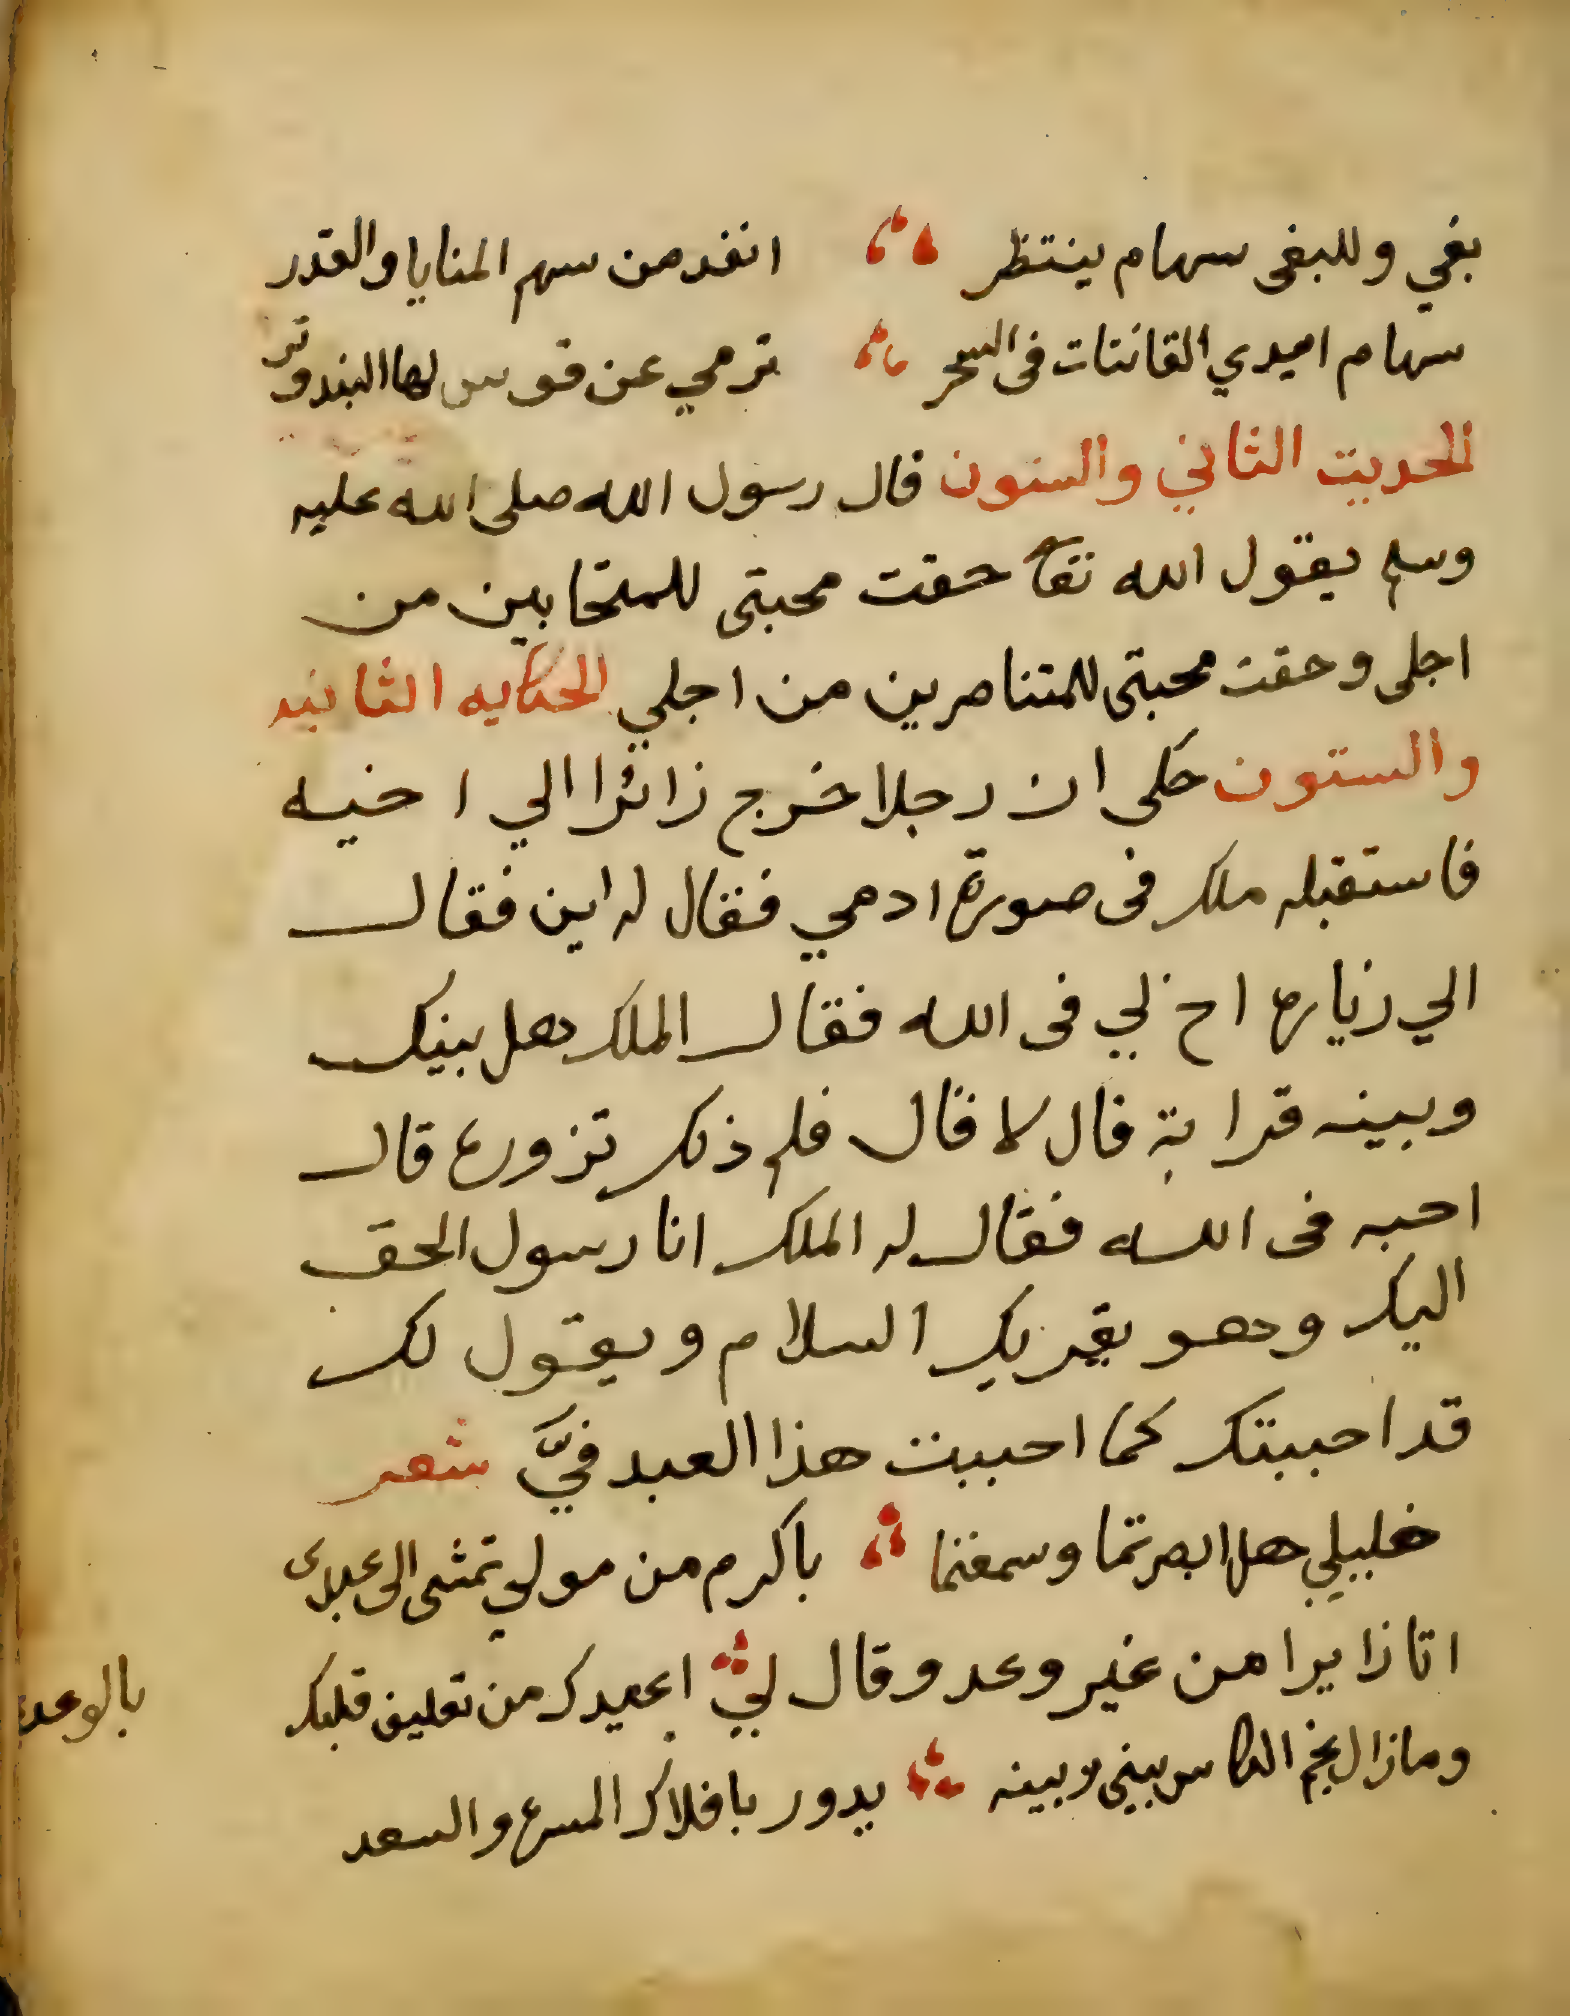 بغي وللبغى سهام ينتظر انفد من سهم المنايا والقدر
سهام ايدي القانتات فى السحر ترمي عن قوس لها البند وتر
الحديت الثاني والستون قال رسول الله صلى الله عليه
وسلم يقول الله تعا حقت محبتى للمتحابين من
اجلى وحقت محبتى للمتناصرين من اجلي الحكايه الثانيه
والستون حكى ان رجلا خرج زائرا الي اخيه
فاستقبله ملك فى صورة ادمي فقال له اين فقال
الي زياره اخ لي فى الله فقال الملك هل بينك
وبينه قرابة قال لا قال فلم ذلك تزوره قال
احبه فى الله فقال له الملك انا رسول الحق
اليك وهو يقريك السلام ويقول لك
قد احببتك كما احببت هذا العبد فيَّ شعر
خليلي هل ابصرتما وسمعتما باكرم من مولي تمشى الى عبد
اتا زايرا من غير وعد وقال لي اعيدك من تعليق قلبك بالوعد
ومازال نجم الكاس بينى وبينه يدور بافلاك المسره والسعد